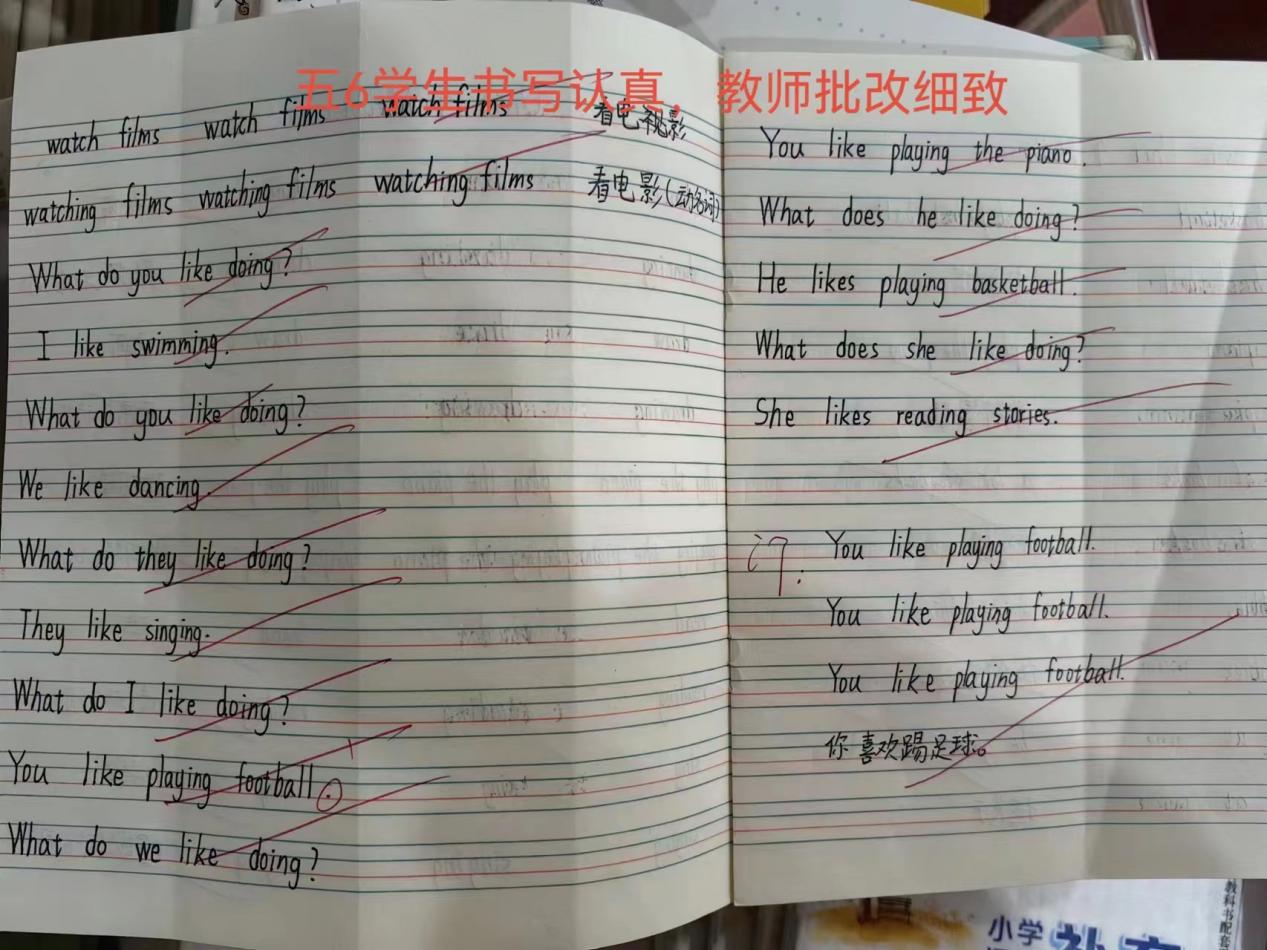 五6学生书写认真，教师批改细致
watch films watch films watch films 看电影
watching films watching films watching films 看电影(动名词)
What do you like doing?
I like swimming.
What do you like doing?
We like dancing.
What do they like doing?
They like singing.
What do I like doing?
You like playing football.
What do we like doing?
You like playing the piano.
What does he like doing?
He likes playing basketball.
What does she like doing?
She likes reading stories.
订.
You like playing football.
You like playing football.
You like playing football.
你喜欢踢足球。
小学
教科书配套